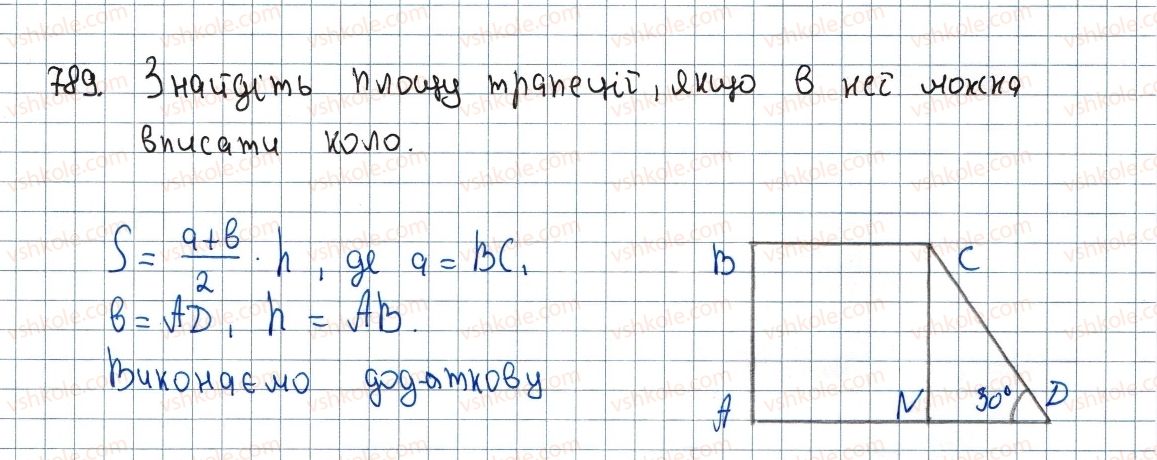 789. Знайдіть площу трапеції, якщо в неї можна
вписати коло.
S = a+b/2 · h, де a = BC,
b = AD, h = AB.
Виконаємо додаткову
B C
A N 30° D
vshkole.com